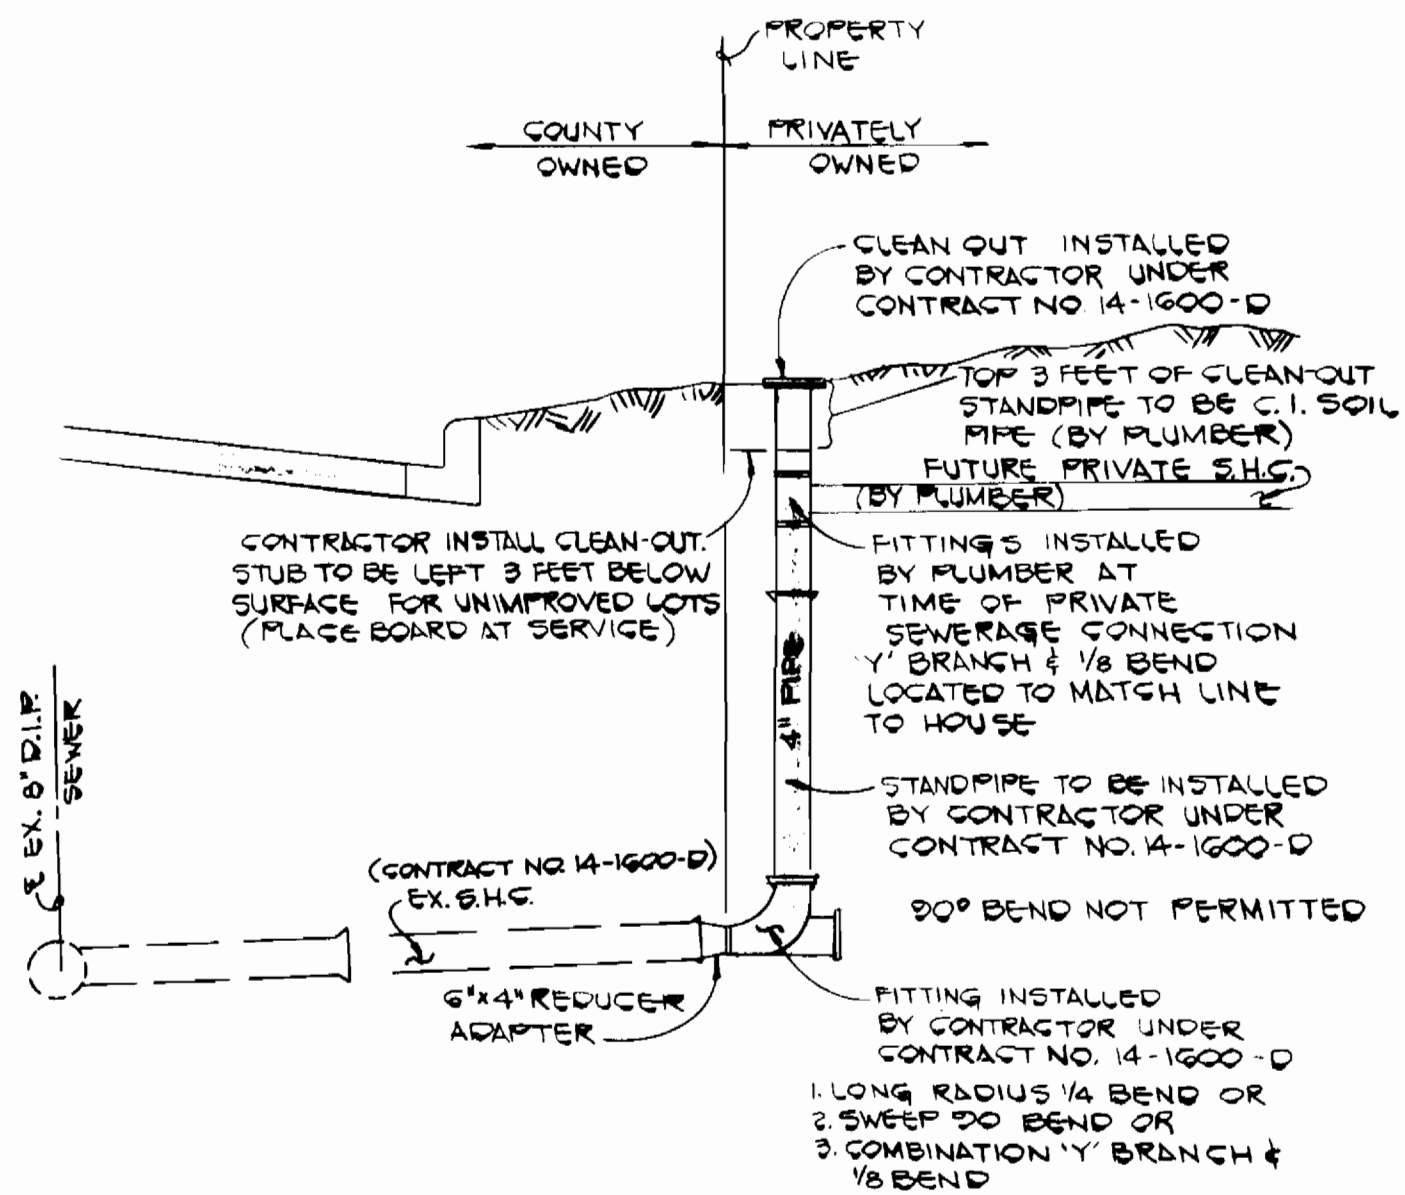 PROPERTY
LINE
COUNTY
OWNED
PRIVATELY
OWNED
CLEAN OUT INSTALLED
BY CONTRACTOR UNDER
CONTRACT NO. 14-1600-D
TOP 3 FEET OF CLEAN-OUT
STANDPIPE TO BE C.I. SOIL
PIPE (BY PLUMBER)
FUTURE PRIVATE S.H.C.
(BY PLUMBER)
CONTRACTOR INSTALL CLEAN-OUT.
STUB TO BE LEFT 3 FEET BELOW
SURFACE FOR UNIMPROVED LOTS
(PLACE BOARD AT SERVICE)
FITTINGS INSTALLED
BY PLUMBER AT
TIME OF PRIVATE
SEWERAGE CONNECTION
'Y' BRANCH & 1/8 BEND
LOCATED TO MATCH LINE
TO HOUSE
4" PIPE
℄ EX. 8" D.I.P.
SEWER
STANDPIPE TO BE INSTALLED
BY CONTRACTOR UNDER
CONTRACT NO. 14-1600-D
(CONTRACT NO. 14-1600-D)
EX. S.H.C.
90° BEND NOT PERMITTED
6"x4" REDUCER
ADAPTER
FITTING INSTALLED
BY CONTRACTOR UNDER
CONTRACT NO. 14-1600-D
1. LONG RADIUS 1/4 BEND OR
2. SWEEP 90 BEND OR
3. COMBINATION 'Y' BRANCH &
1/8 BEND